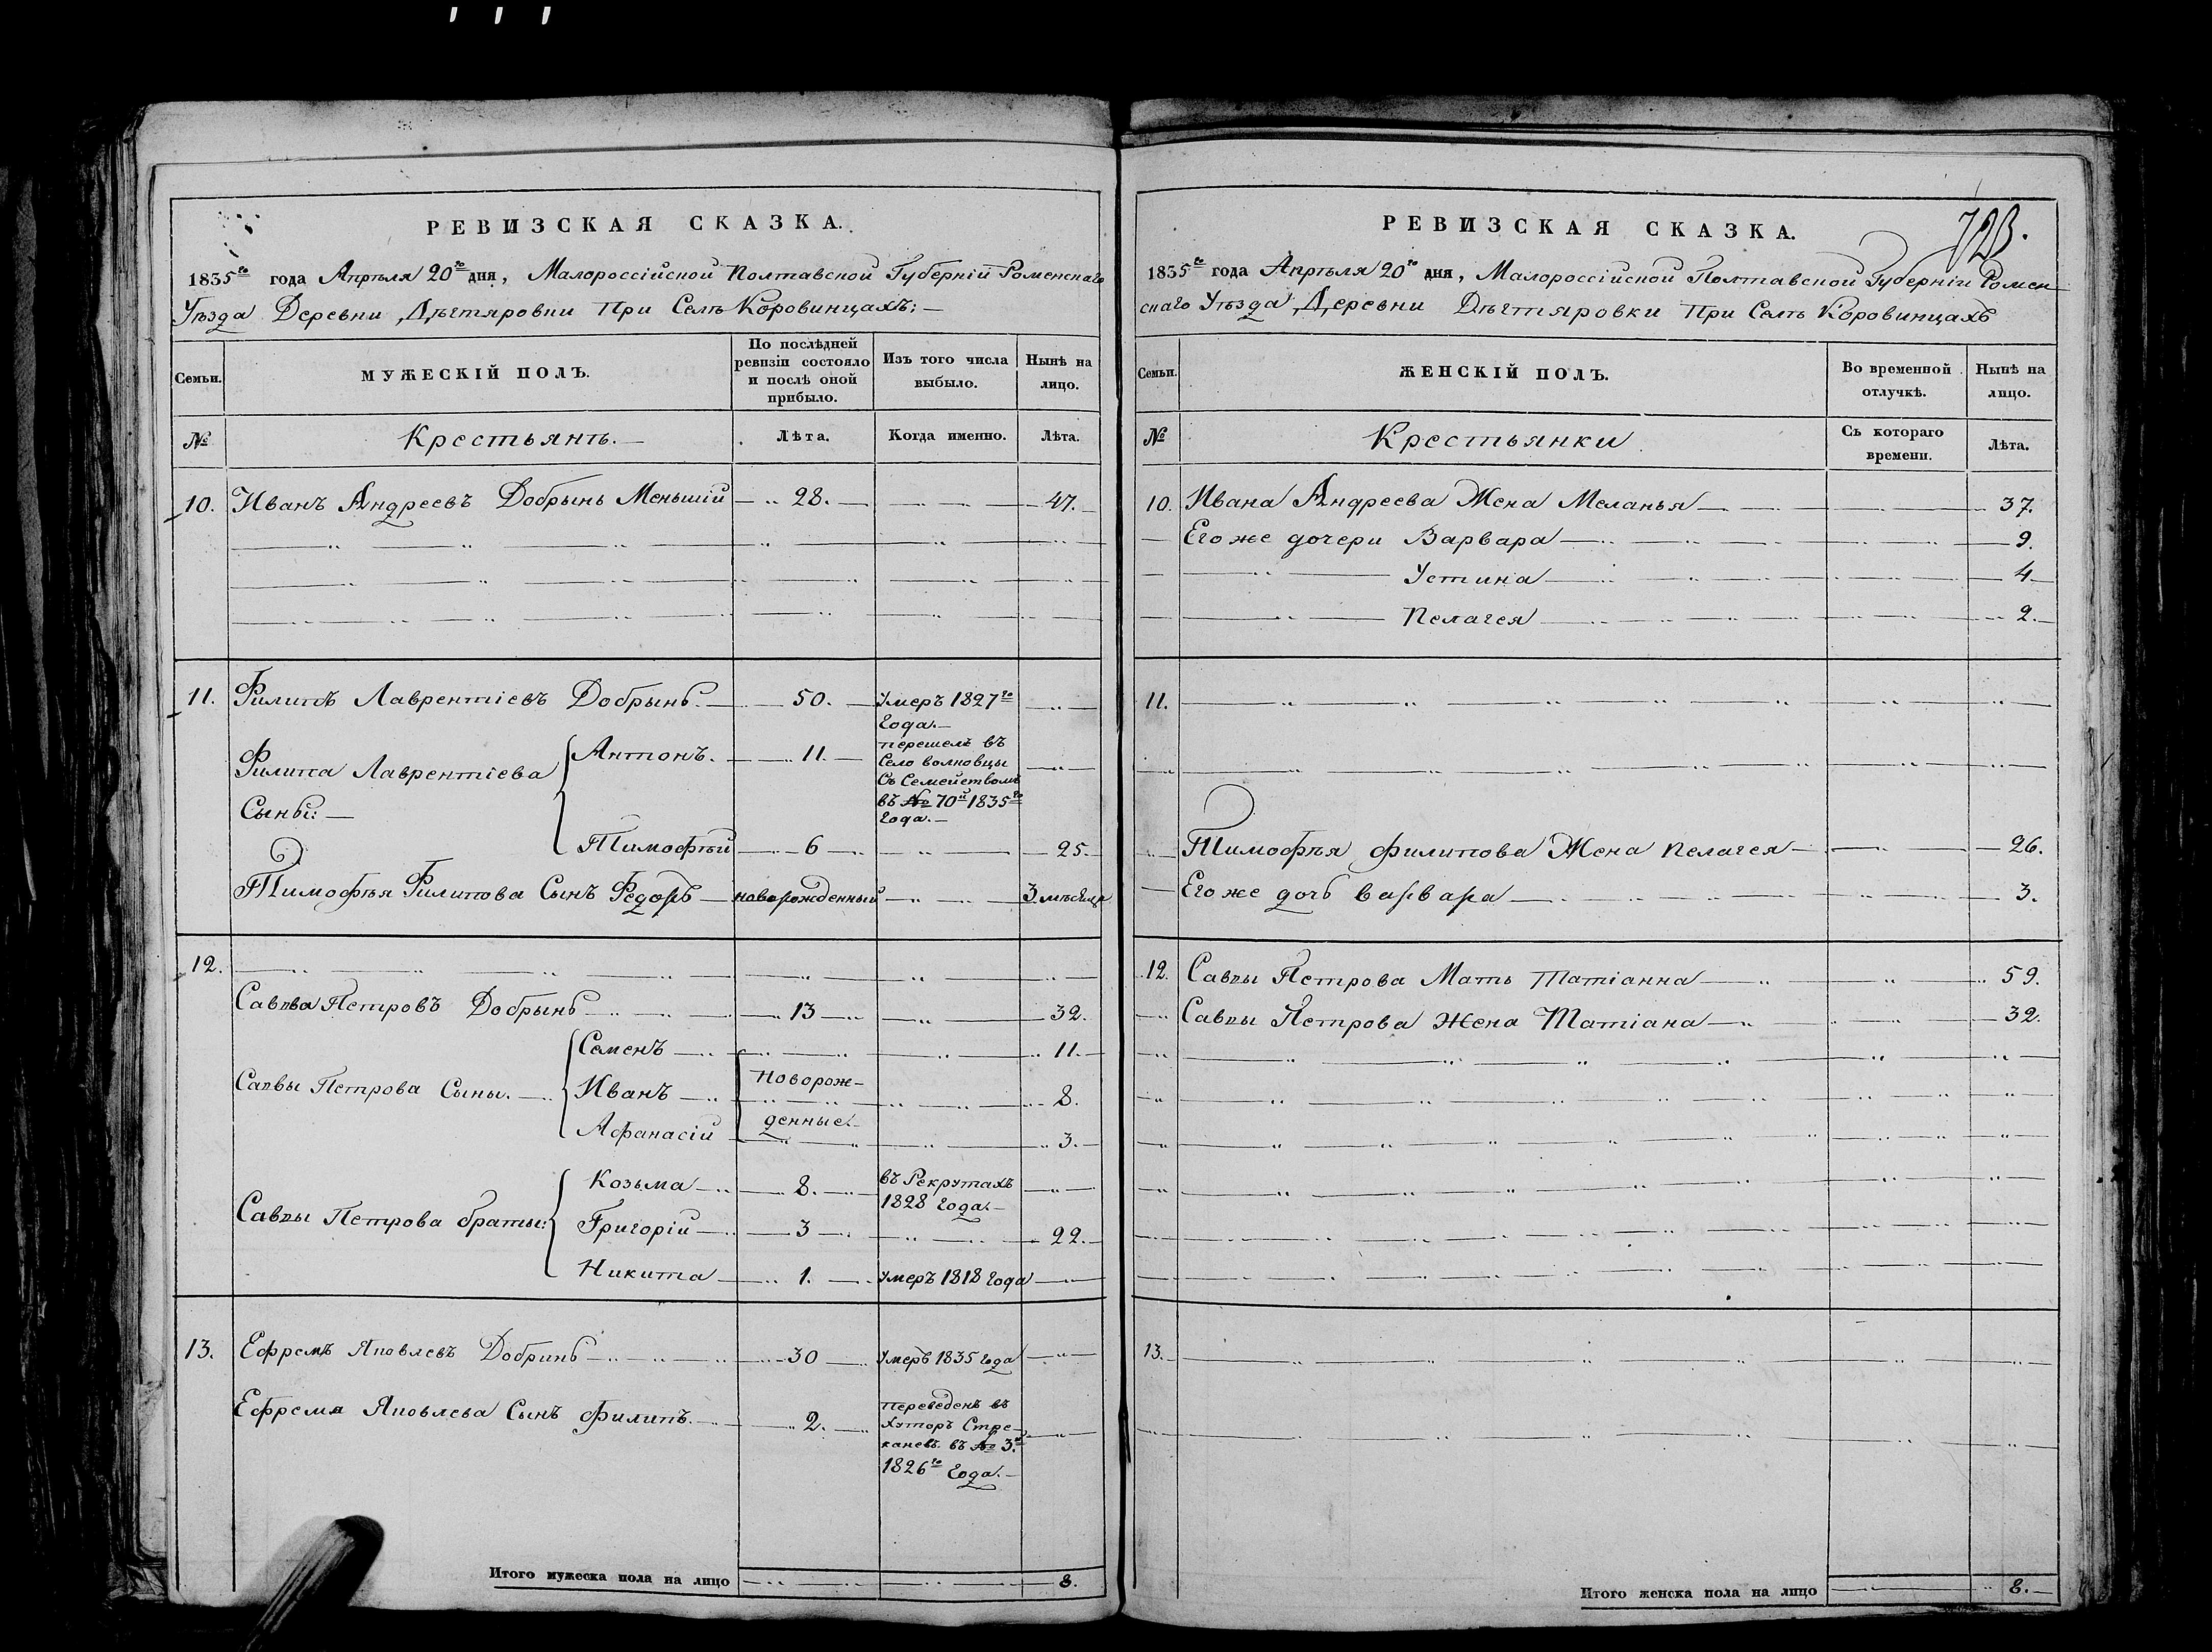 РЕВИЗСКАЯ СКАЗКА.
1835го года Апрѣля 20го дня, Малороссійской Полтавской Губерній Роменскаго
Уѣзда Деревни Дѣгтяровки При Селѣ Коровинцахъ:
Семьи.
МУЖЕСКІЙ ПОЛЪ.
По послѣдней ревизіи состояло и послѣ оной прибыло.
Изъ того числа выбыло.
Нынѣ на лицо.
№
Крестьянъ.
Лѣта.
Когда именно.
Лѣта.
10. Иванъ Андреевъ Добрынь Меньшій 28. 47.
11. Филипъ Лаврентіевъ Добрынь. 50. Умеръ 1827го года.
Филипа Лаврентіева Сыны:
Антонъ. 11. перешелъ въ Село волковцы Съ Семействомъ въ № 70й 1835го года.
Тимофѣй 6 25.
Тимофѣя Филипова Сынъ Федоръ новорожденный 3 мѣсяца
12.
Савва Петровъ Добрынь 13 32.
Саввы Петрова Сыны.
Семенъ 11.
Иванъ Новорож- 8.
Афанасій денные. 3.
Саввы Петрова браты:
Козьма 8. въ Рекрутахъ 1828 года.
Григорій 3 22.
Никита 1. умеръ 1818 года
13. Ефремъ Яковлевъ Добринь 30 умеръ 1835 года
Ефрема Яковлева Сынъ Филипъ. 2. переведенъ въ хуторъ въ № 3й 1826го года.
Итого мужеска пола на лицо 8.
РЕВИЗСКАЯ СКАЗКА.
723.
1835го года Апрѣля 20го дня, Малороссійской Полтавской Губерніи Ромен
скаго Уѣзда Деревни Дѣгтяровки При Селѣ Коровинцахъ
Семьи.
ЖЕНСКІЙ ПОЛЪ.
Во временной отлучкѣ.
Нынѣ на лицо.
№
Крестьянки
Съ котораго времени.
Лѣта.
10. Ивана Андреева Жена Меланья 37.
Его же дочери Варвара 9.
Устина 4
Пелагея 2.
11.
Тимофѣя Филипова Жена Пелагея 26.
Его же дочь варвара 3.
12. Саввы Петрова Мать Татіанна 59.
Саввы Петрова Жена Татіана 32.
13.
Итого женска пола на лицо 8.